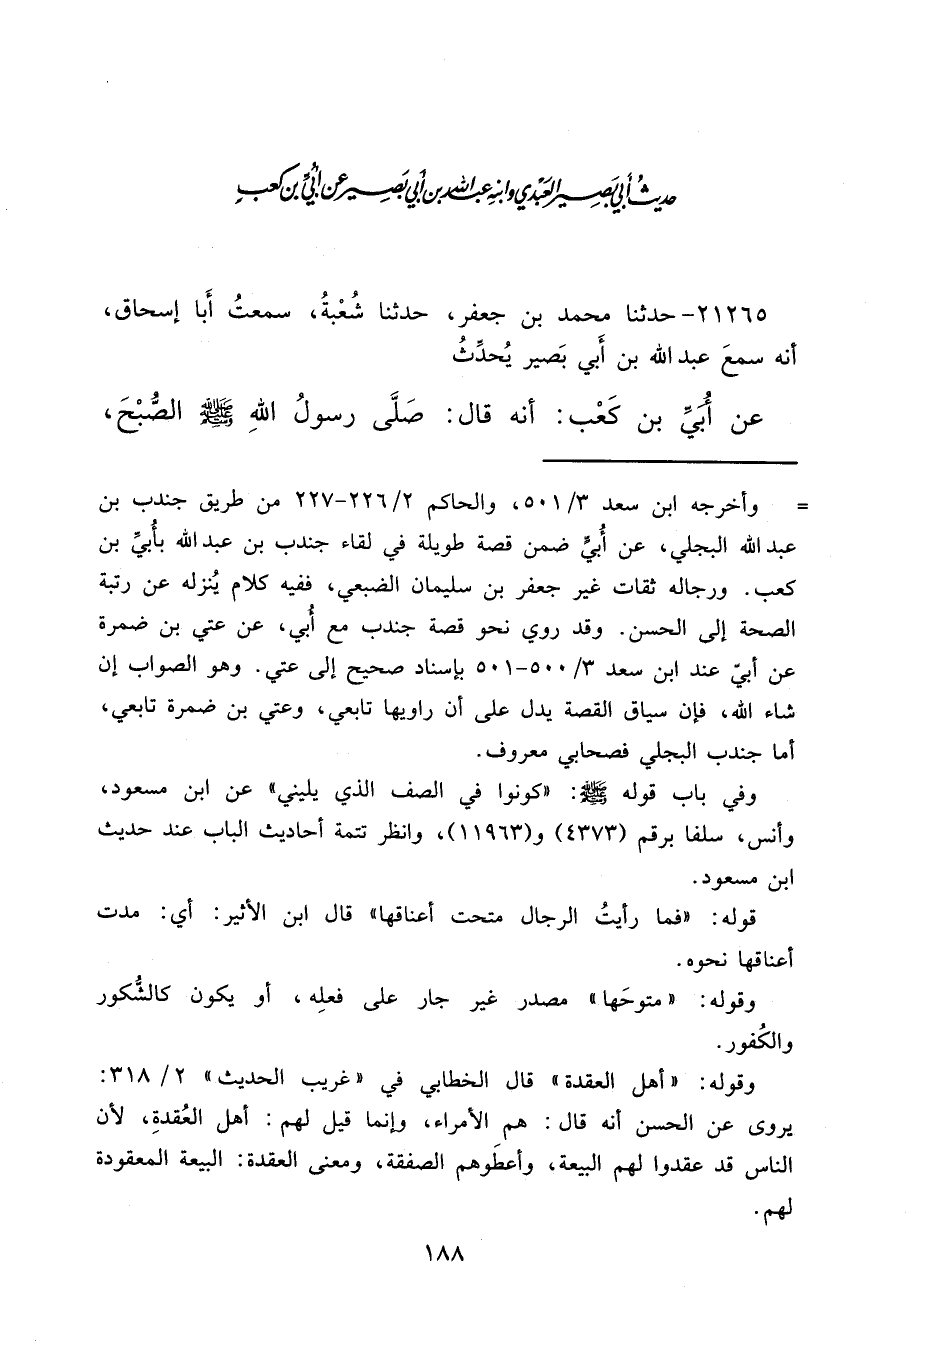 حديثُ أبي بَصِير العَبْدي وابنهِ عبد الله بن أبي بَصِير عن أُبيِّ بن كعبٍ
٢١٢٦٥- حدثنا محمد بن جعفر، حدثنا شُعْبةُ، سمعتُ أَبا إسحاق،
أنه سمعَ عبد الله بن أَبي بَصير يُحدِّثُ
عن أُبَيِّ بن كَعْب: أنه قال: صَلَّى رسولُ اللهِ ﷺ الصُّبْحَ،
= وأخرجه ابن سعد ٥٠١/٣، والحاكم ٢٢٦/٢-٢٢٧ من طريق جندب بن
عبد الله البجلي، عن أُبيٍّ ضمن قصة طويلة في لقاء جندب بن عبد الله بأُبيِّ بن
كعب. ورجاله ثقات غير جعفر بن سليمان الضبعي، ففيه كلام يُنزله عن رتبة
الصحة إلى الحسن. وقد روي نحو قصة جندب مع أُبي، عن عتي بن ضمرة
عن أبيّ عند ابن سعد ٥٠٠/٣-٥٠١ بإسناد صحيح إلى عتي. وهو الصواب إن
شاء الله، فإن سياق القصة يدل على أن راويها تابعي، وعتي بن ضمرة تابعي،
أما جندب البجلي فصحابي معروف.
وفي باب قوله ﷺ: «كونوا في الصف الذي يليني» عن ابن مسعود،
وأنس، سلفا برقم (٤٣٧٣) و(١١٩٦٣)، وانظر تتمة أحاديث الباب عند حديث
ابن مسعود.
قوله: «فما رأيتُ الرجال متحت أعناقها» قال ابن الأثير: أي: مدت
أعناقها نحوه.
وقوله: «متوحَها» مصدر غير جار على فعلِه، أو يكون كالشُّكور
والكُفور.
وقوله: «أهل العقدة» قال الخطابي في «غريب الحديث» ٣١٨/٢:
يروى عن الحسن أنه قال: هم الأمراء، وإنما قيل لهم: أهل العُقدةِ، لأن
الناس قد عقدوا لهم البيعة، وأعطَوهم الصفقة، ومعنى العقدة: البيعة المعقودة
لهم.
١٨٨